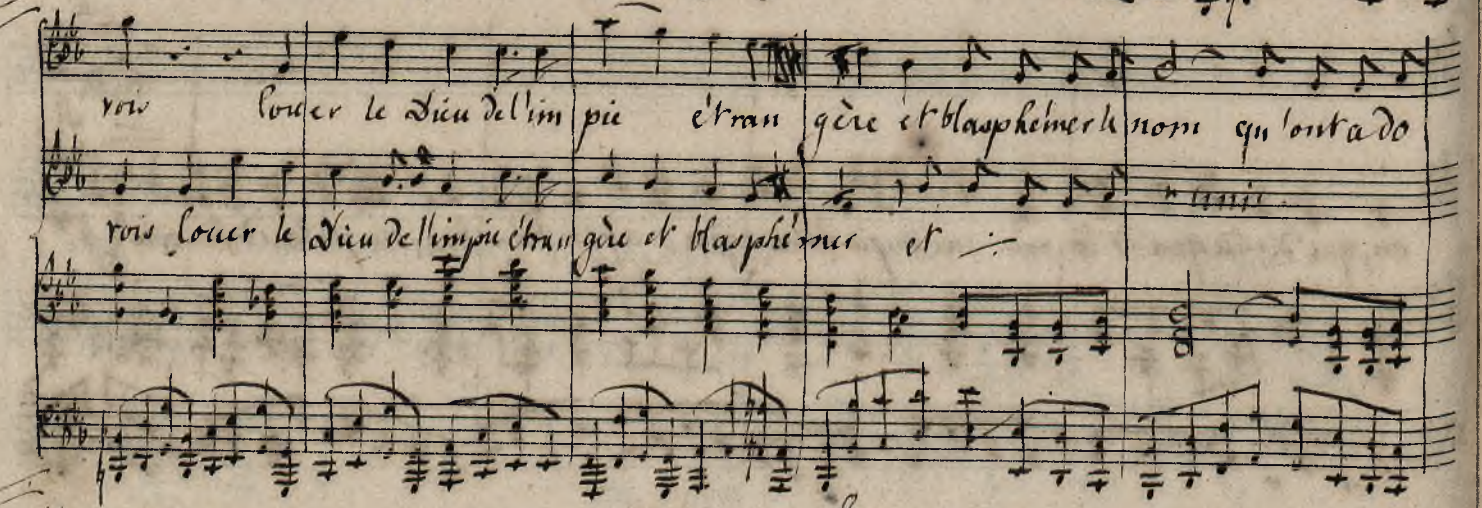 vois louer le Dieu de l'im pie étran gère et blasphémer le nom qu'ont ado
unis.
vois louer le Dieu de l'impie étran gère et blasphémer et